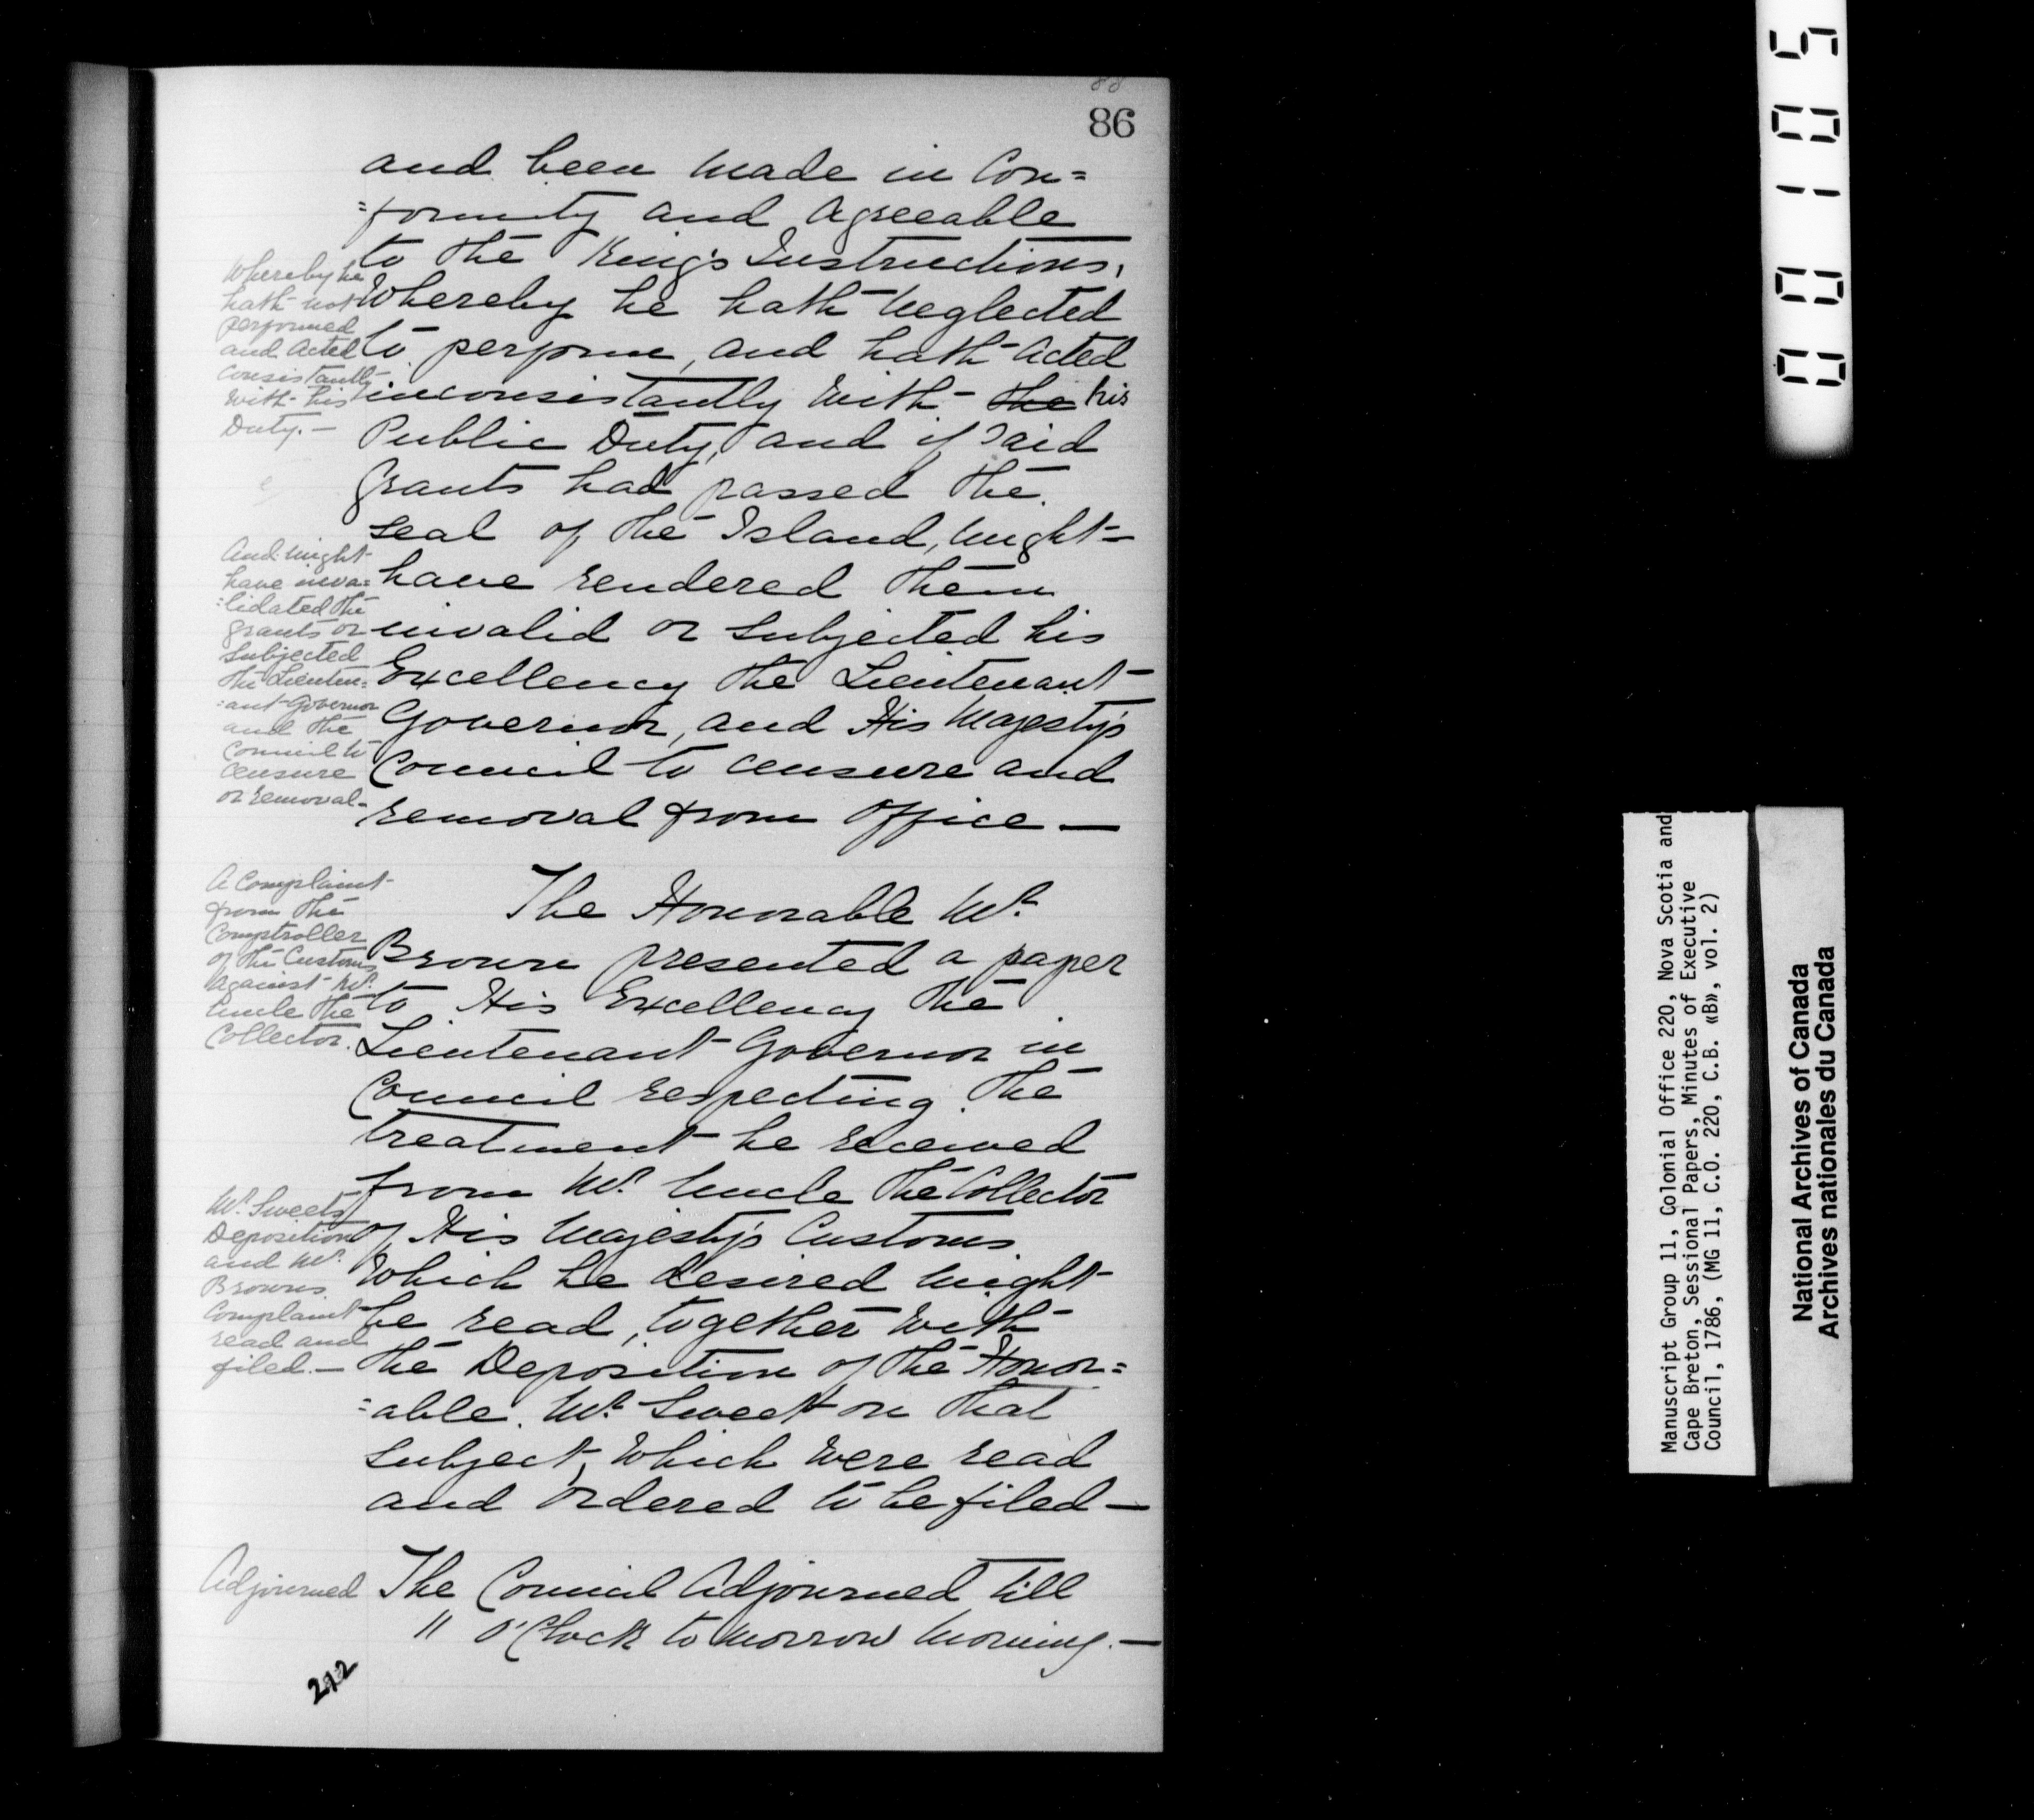 88
86
and been made in Con=
=formity and Agreeable
to the King's Instructions,
Whereby he hath neglected
to perform, and hath Acted
inconsistantly with the his
Public Duty, and if Said
Grants had passed the
Seal of the Island, might
have rendered them
invalid or subjected his
Excellency the Lieutenant
Governor, and His Majesty's
Council to censure and
removal from Office —
Whereby he
hath not
performed
and Acted
consistantly
with his
Duty. —
And might
have inva=
=lidated the
Grants or
subjected
the Lieuten=
=ant Governor
and the
Council to
censure
or removal -
The Honorable Mr.
Brown presented a paper
to His Excellency the
Lieutenant Governor in
Council respecting the
treatment he received
from Mr. Uncle the Collector
of His Majesty's Customs.
Which he desired might
be read, together with
the Deposition of the Honor=
=able. Mr. Sweet on that
subject, which were read
and ordered to be filed —
A Complaint
from the
Comptroller
of the Customs
against Mr.
Uncle the
Collector.
Mr. Sweets
Deposition
and Mr.
Browns
Complaint
read and
filed. —
Adjourned
The Council Adjourned till
11 O'Clock tomorrow Morning. —
212
00105
Manuscript Group 11, Colonial Office 220, Nova Scotia and
Cape Breton, Sessional Papers, Minutes of Executive
Council, 1786, (MG 11, C.O. 220, C.B. «B», vol. 2)
National Archives of Canada
Archives nationales du Canada